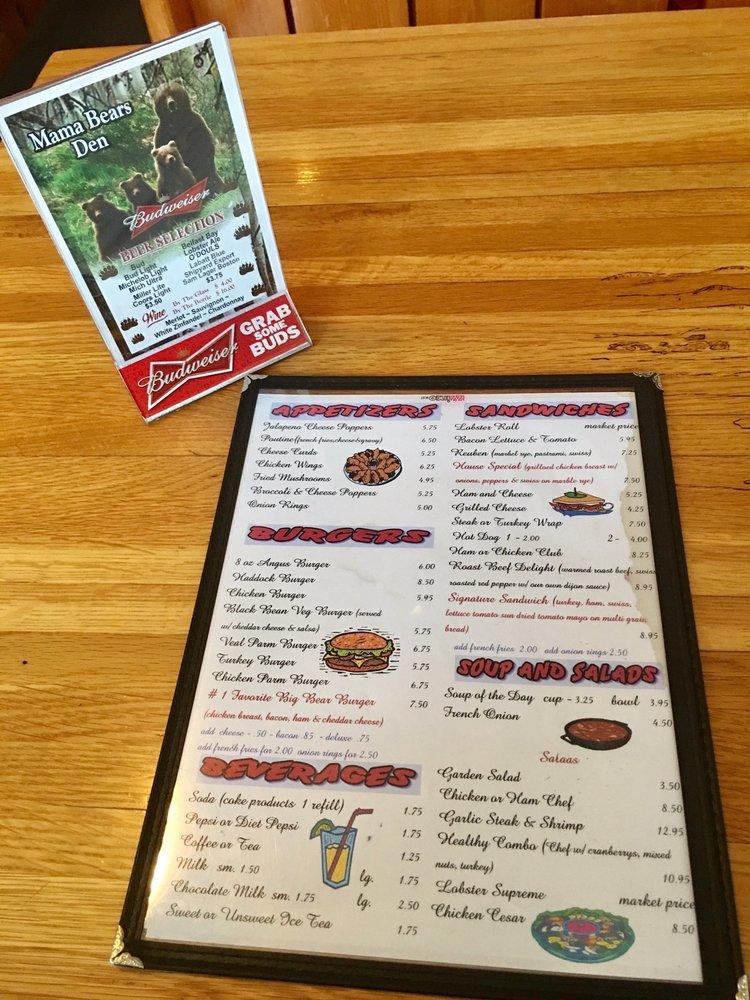 Mama Bears
Den
Budweiser
BEER SELECTION
Bud
Bud Light
Michelob Light
Mich Ultra
Miller Lite
Coors Light
$3.50
Belfast Bay
Lobster Ale
O'DOULS
Labatt Blue
Shipyard Export
Sam Lager Boston
$3.75
Wine By The Glass $ 4.00
By The Bottle $ 16.00
Merlot ~ Sauvignon ~
White Zinfandel ~ Chardonnay
Budweiser
GRAB
SOME
BUDS
APPETIZERS
Jalapeno Cheese Poppers 5.75
Poutine(french fries,cheese&gravy) 6.50
Cheese Curds 5.25
Chicken Wings 6.25
Fried Mushrooms 4.95
Broccoli & Cheese Poppers 5.25
Onion Rings 5.00
BURGERS
8 oz Angus Burger 6.00
Haddock Burger 8.50
Chicken Burger 5.95
Black Bean Veg Burger (served
w/cheddar cheese & salsa) 5.75
Veal Parm Burger 6.75
Turkey Burger 5.75
Chicken Parm Burger 6.75
# 1 Favorite Big Bear Burger 7.50
(chicken breast, bacon, ham & cheddar cheese)
add cheese - .50 - bacon .85 - deluxe .75
add french fries for 2.00 onion rings for 2.50
BEVERAGES
Soda (coke products 1 refill) 1.75
Pepsi or Diet Pepsi 1.75
Coffee or Tea 1.25
Milk sm. 1.50 lg. 1.75
Chocolate Milk sm. 1.75 lg. 2.50
Sweet or Unsweet Ice Tea 1.75
SANDWICHES
Lobster Roll market price
Bacon Lettuce & Tomato 5.95
Reuben (market rye, pastrami, swiss) 7.25
House Special (grilled chicken breast w/
onions, peppers & swiss on marble rye) 7.50
Ham and Cheese 5.25
Grilled Cheese 4.25
Steak or Turkey Wrap 7.50
Hot Dog 1 - 2.00 2 - 4.00
Ham or Chicken Club 8.25
Roast Beef Delight (warmed roast beef, swiss
roasted red pepper w/ our own dijon sauce) 8.95
Signature Sandwich (turkey, ham, swiss,
lettuce tomato sun dried tomato mayo on multi grain
bread) 8.95
add french fries 2.00 add onion rings 2.50
SOUP AND SALADS
Soup of the Day cup - 3.25 bowl 3.95
French Onion 4.50
Salads
Garden Salad 3.50
Chicken or Ham Chef 8.50
Garlic Steak & Shrimp 12.95
Healthy Combo (Chef w/ cranberrys, mixed
nuts, turkey) 10.95
Lobster Supreme market price
Chicken Cesar 8.50